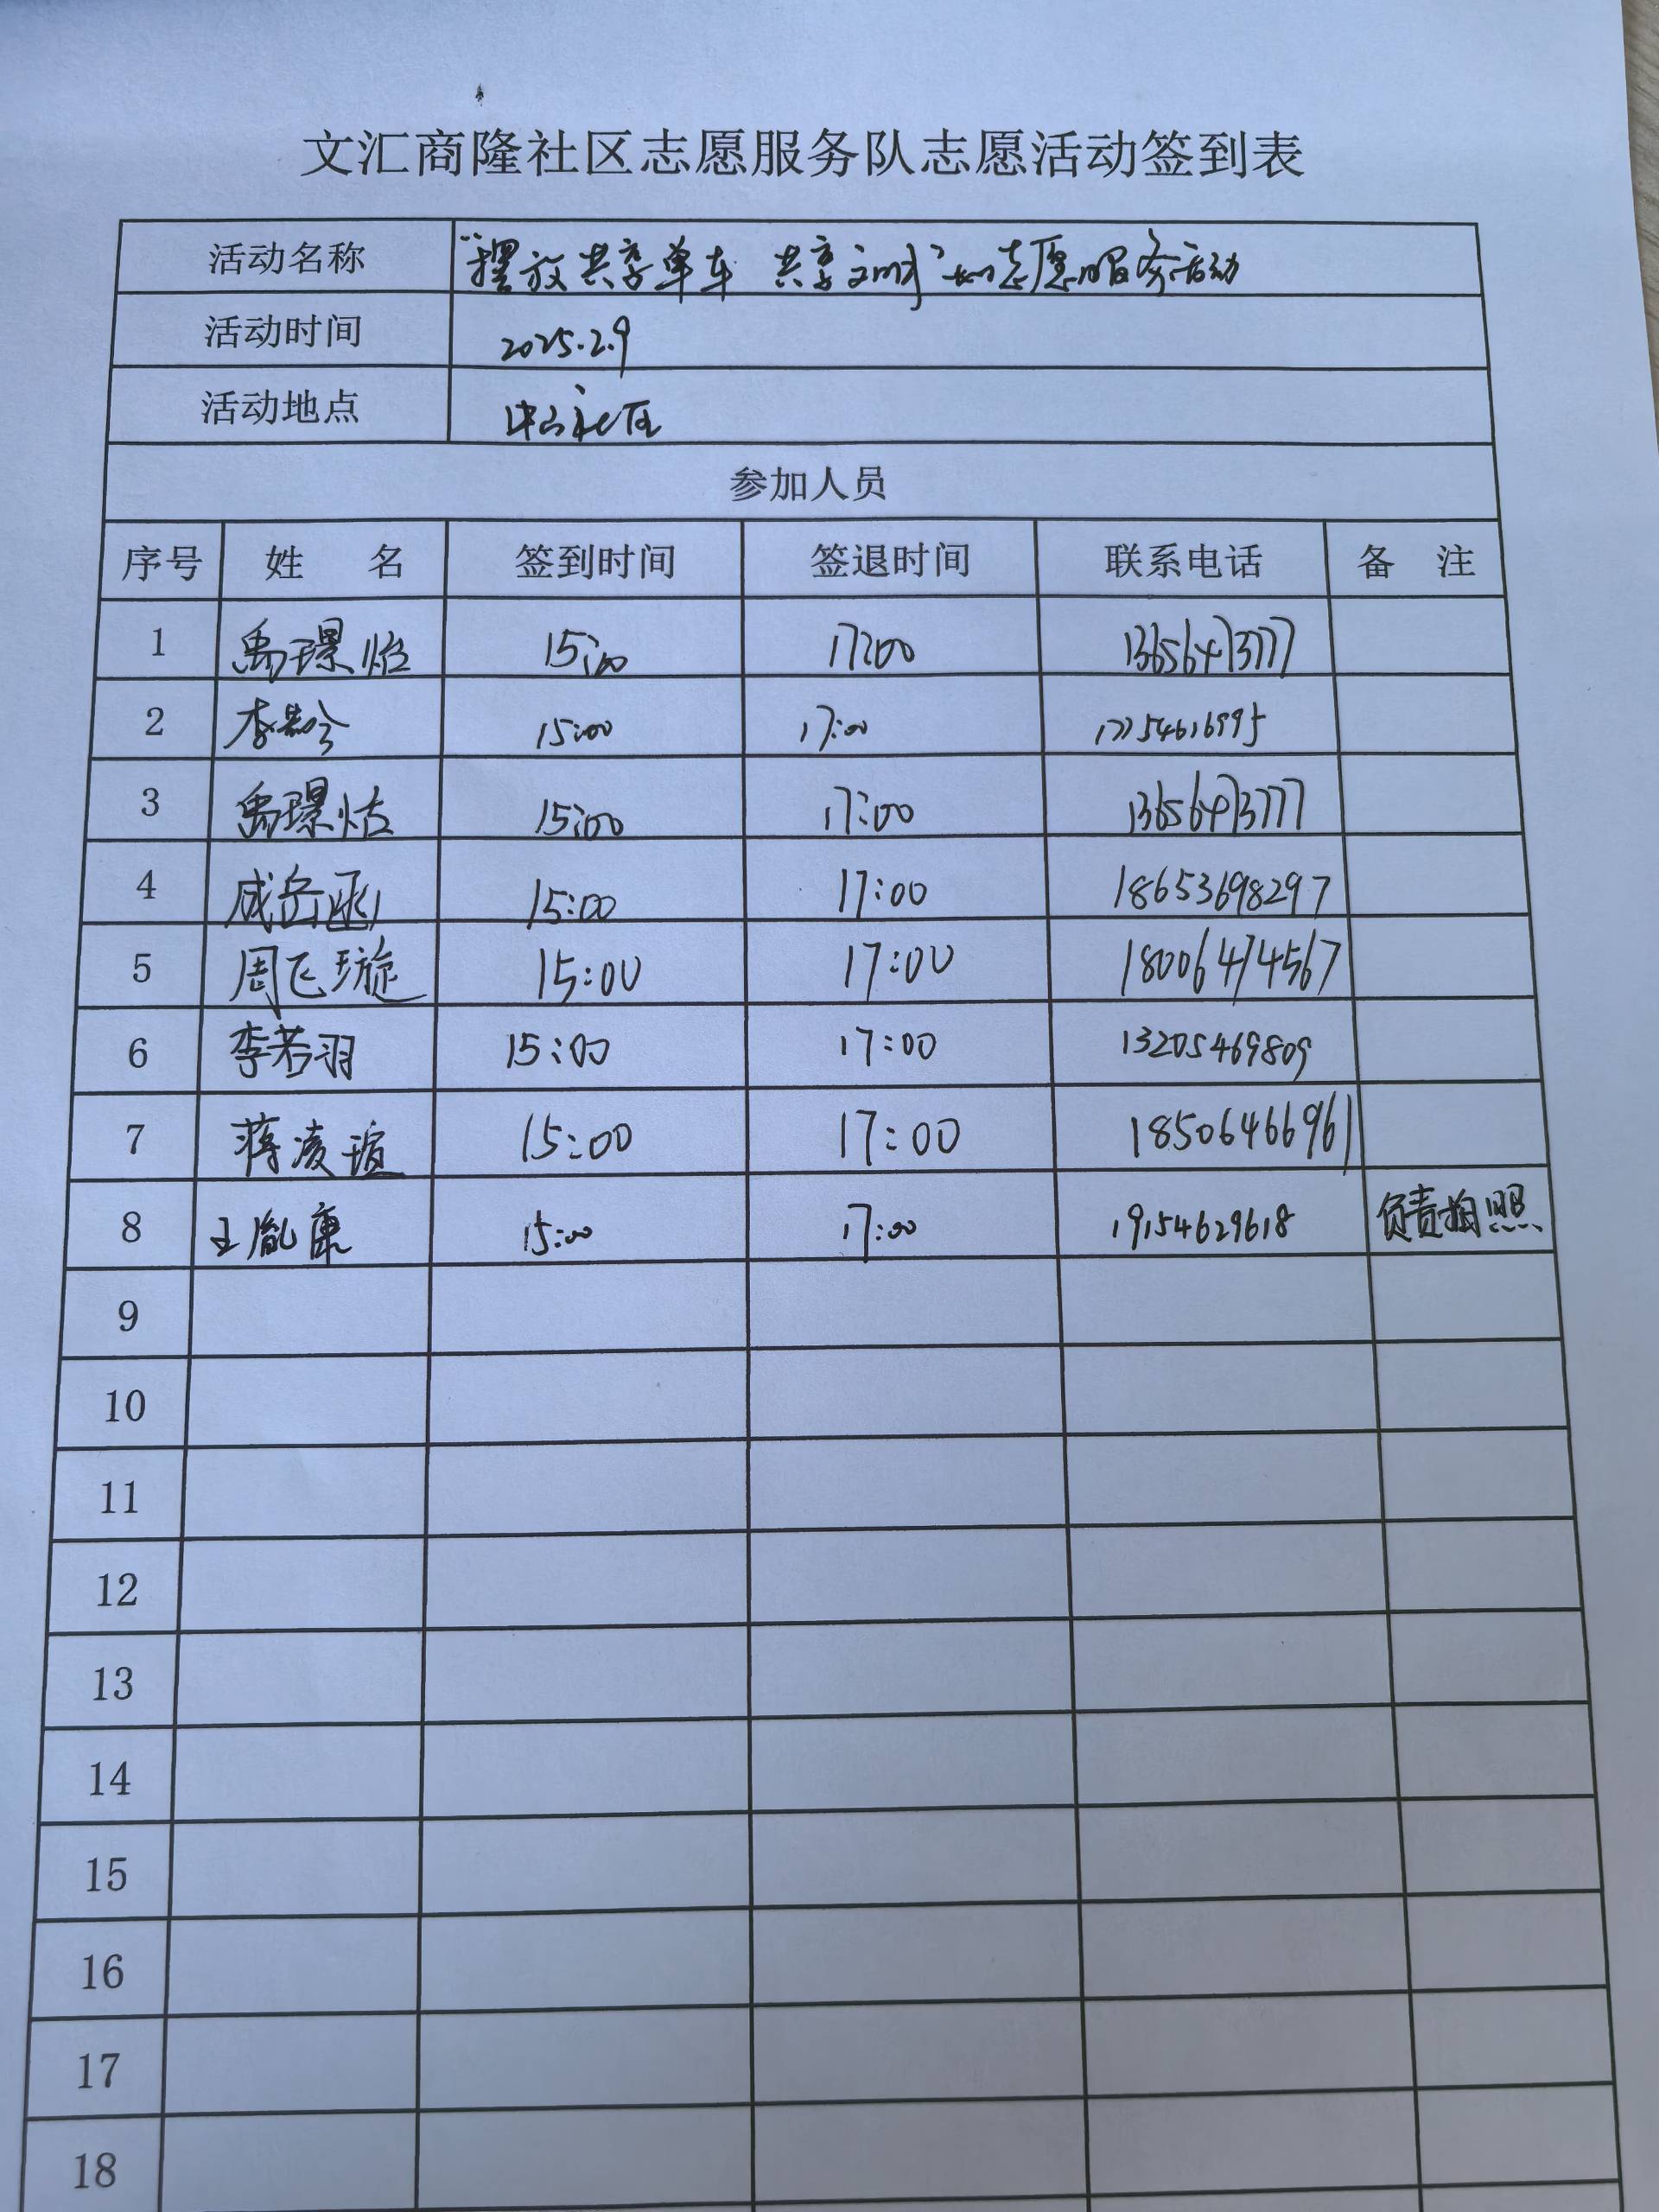 文汇商隆社区志愿服务队志愿活动签到表
活动名称 “摆放共享单车 共享文明”的志愿服务活动
活动时间 2025.2.9
活动地点 社区
参加人员
序号 姓 名 签到时间 签退时间 联系电话 备 注
1 禹璟怡 15:00 17:00 13656473777
2 李 15:00 17:00 17754616995
3 禹璟 15:00 17:00 13656473777
4 咸岳函 15:00 17:00 18653698297
5 周飞璇 15:00 17:00 18006474567
6 李若羽 15:00 17:00 13205469809
7 蒋凌瑄 15:00 17:00 18506466961
8 王胤康 15:00 17:00 19154629618 负责拍照
9
10
11
12
13
14
15
16
17
18